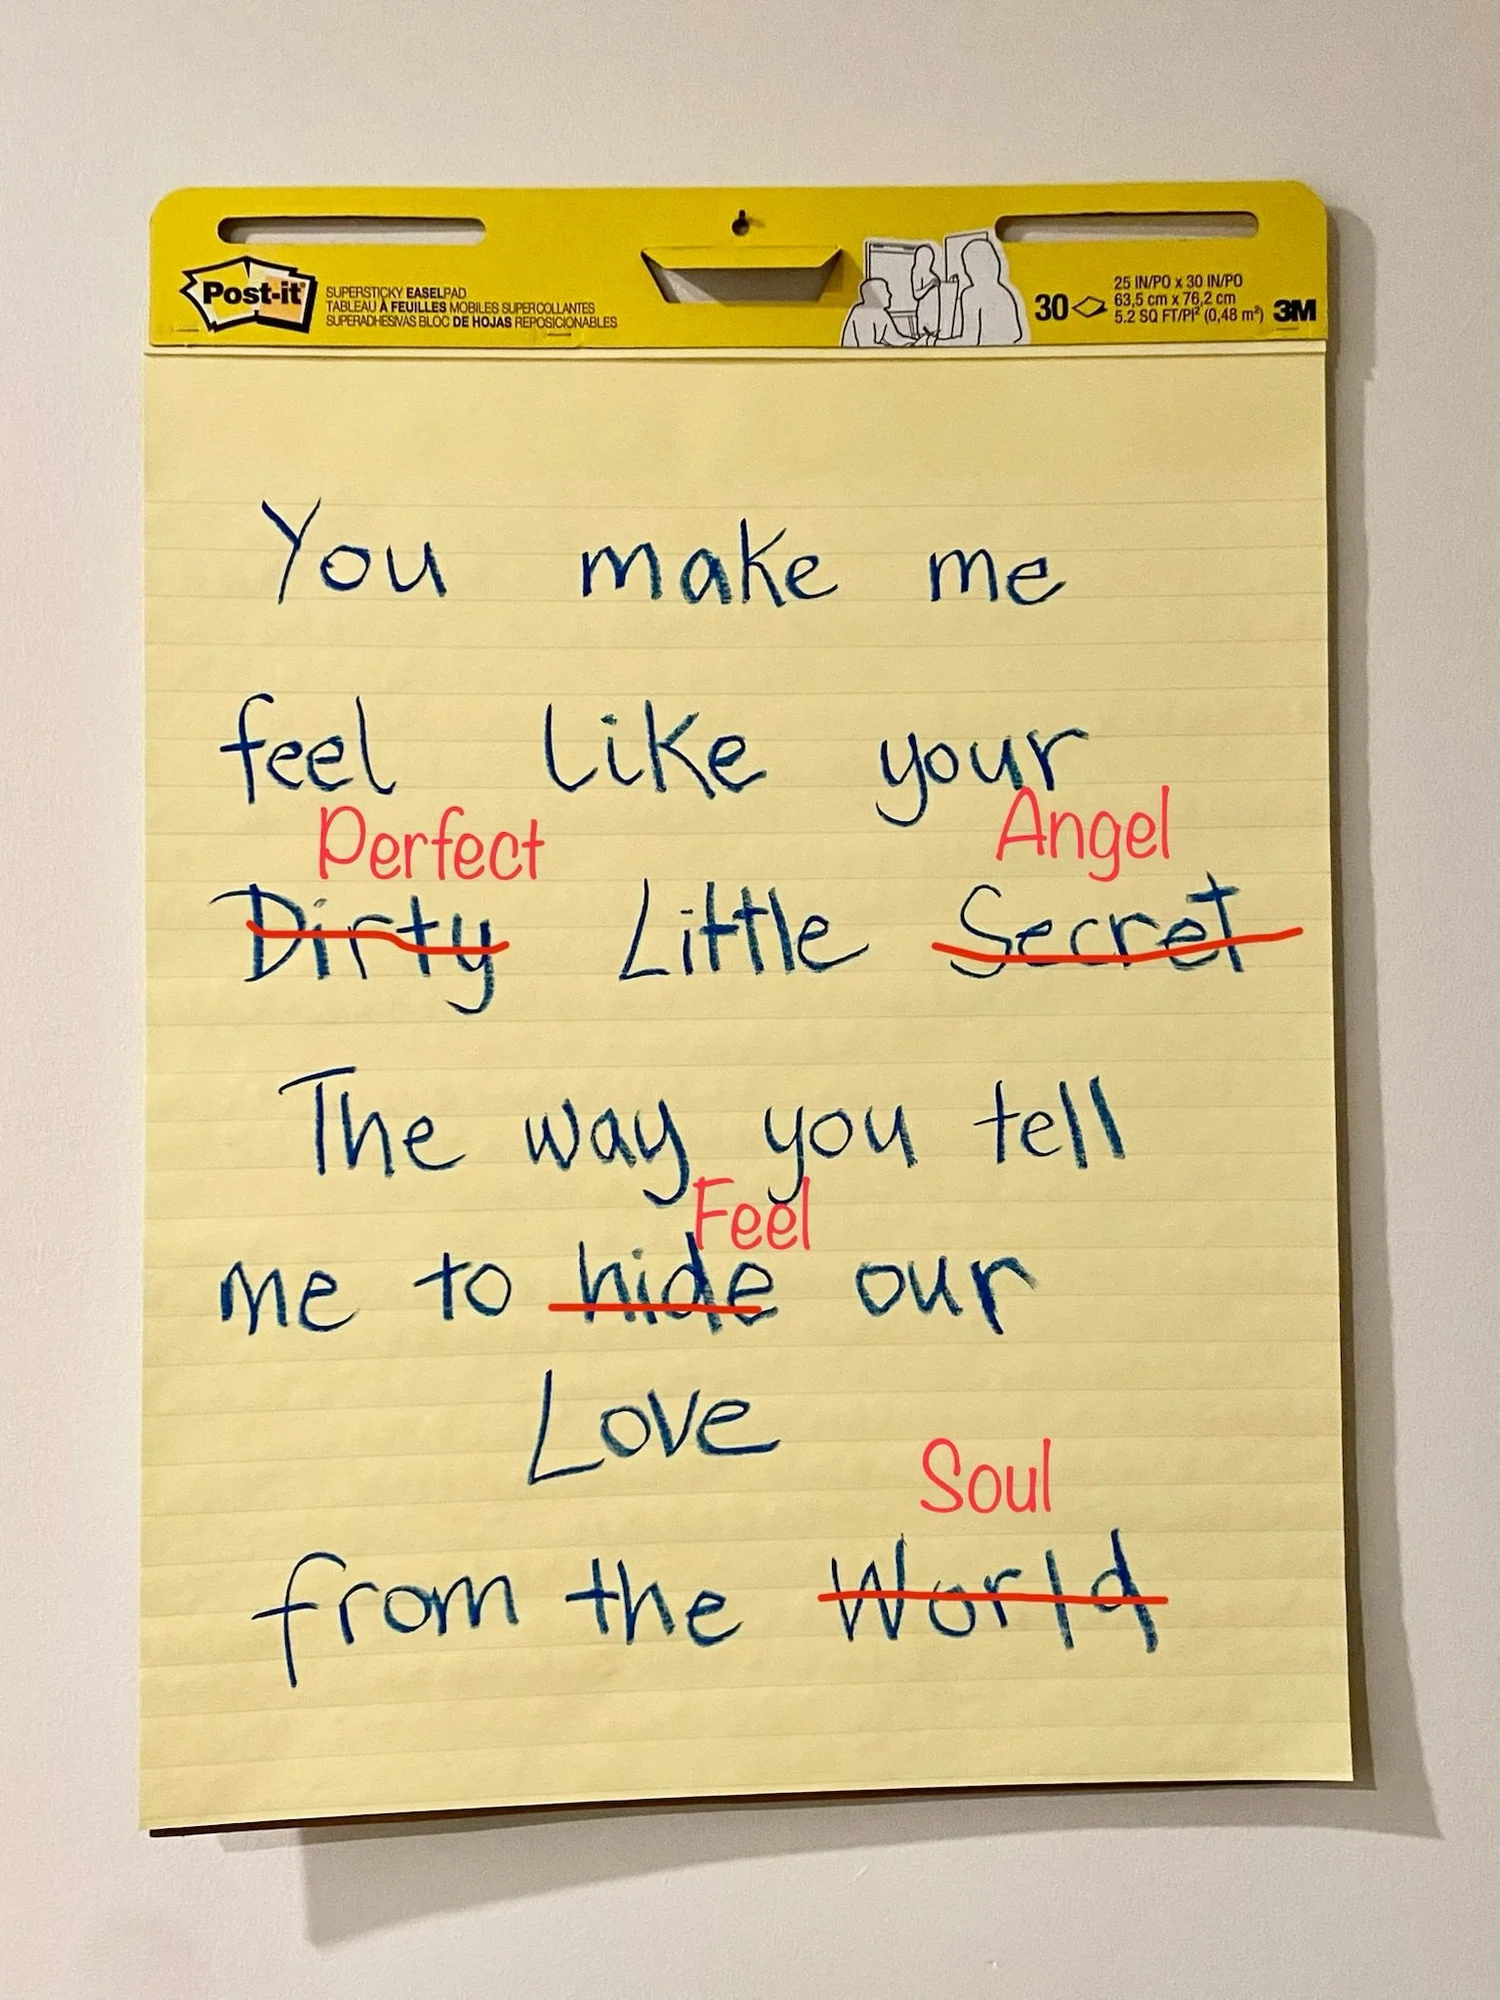 Post-it
SUPERSTICKY EASELPAD
TABLEAU À FEUILLES MOBILES SUPERCOLLANTES
SUPERADHESIVAS BLOC DE HOJAS REPOSICIONABLES
30
25 IN/PO x 30 IN/PO
63,5 cm x 76,2 cm
5.2 SQ FT/PI² (0,48 m²)
3M
You make me
feel like your
Perfect Angel
Dirty Little Secret
The way you tell
Feel
me to hide our
Love
Soul
from the World